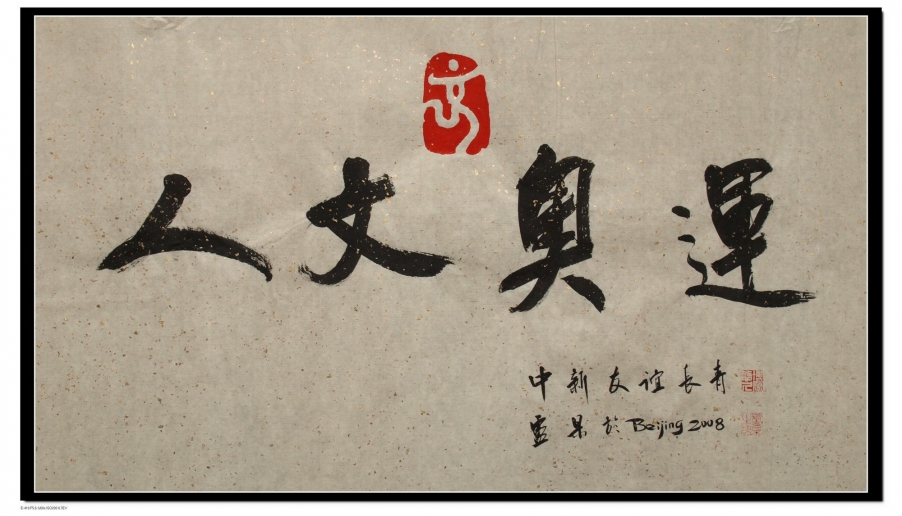 人文奥運
中新友谊長青
靈果於 Beijing 2008